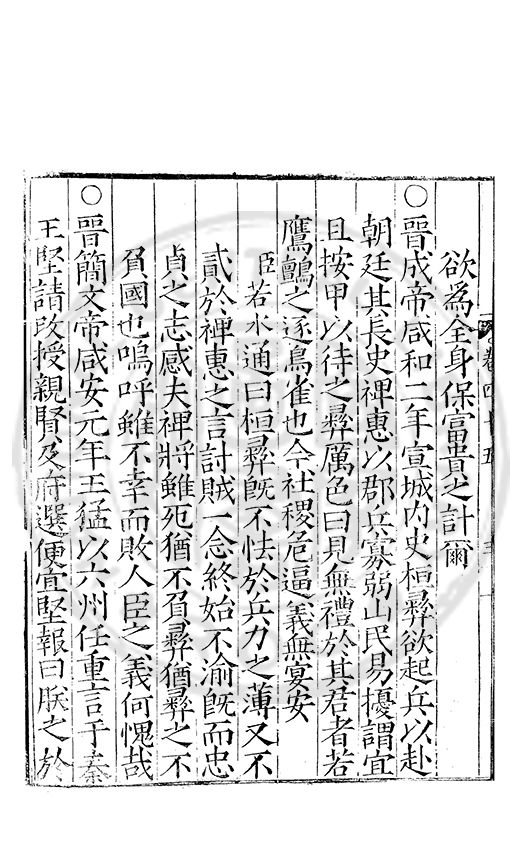 欲爲全身保富貴之計爾
○晉成帝咸和二年宣城內史桓彞欲起兵以赴
朝廷其長史裨惠以郡兵寡弱山民易擾謂宜
且按甲以待之彞厲色曰見無禮於其君者若
鷹鸇之逐鳥雀也今社稷危逼義無宴安
臣若水通曰桓彞旣不怯於兵力之薄又不
貳於裨惠之言討賊一念終始不渝旣而忠
貞之志感夫裨將雖死猶不負彞猶彞之不
負國也嗚呼雖不幸而敗人臣之義何愧哉
○晉簡文帝咸安元年王猛以六州任重言于秦
王堅請改授親賢及府選便宜堅報曰朕之於